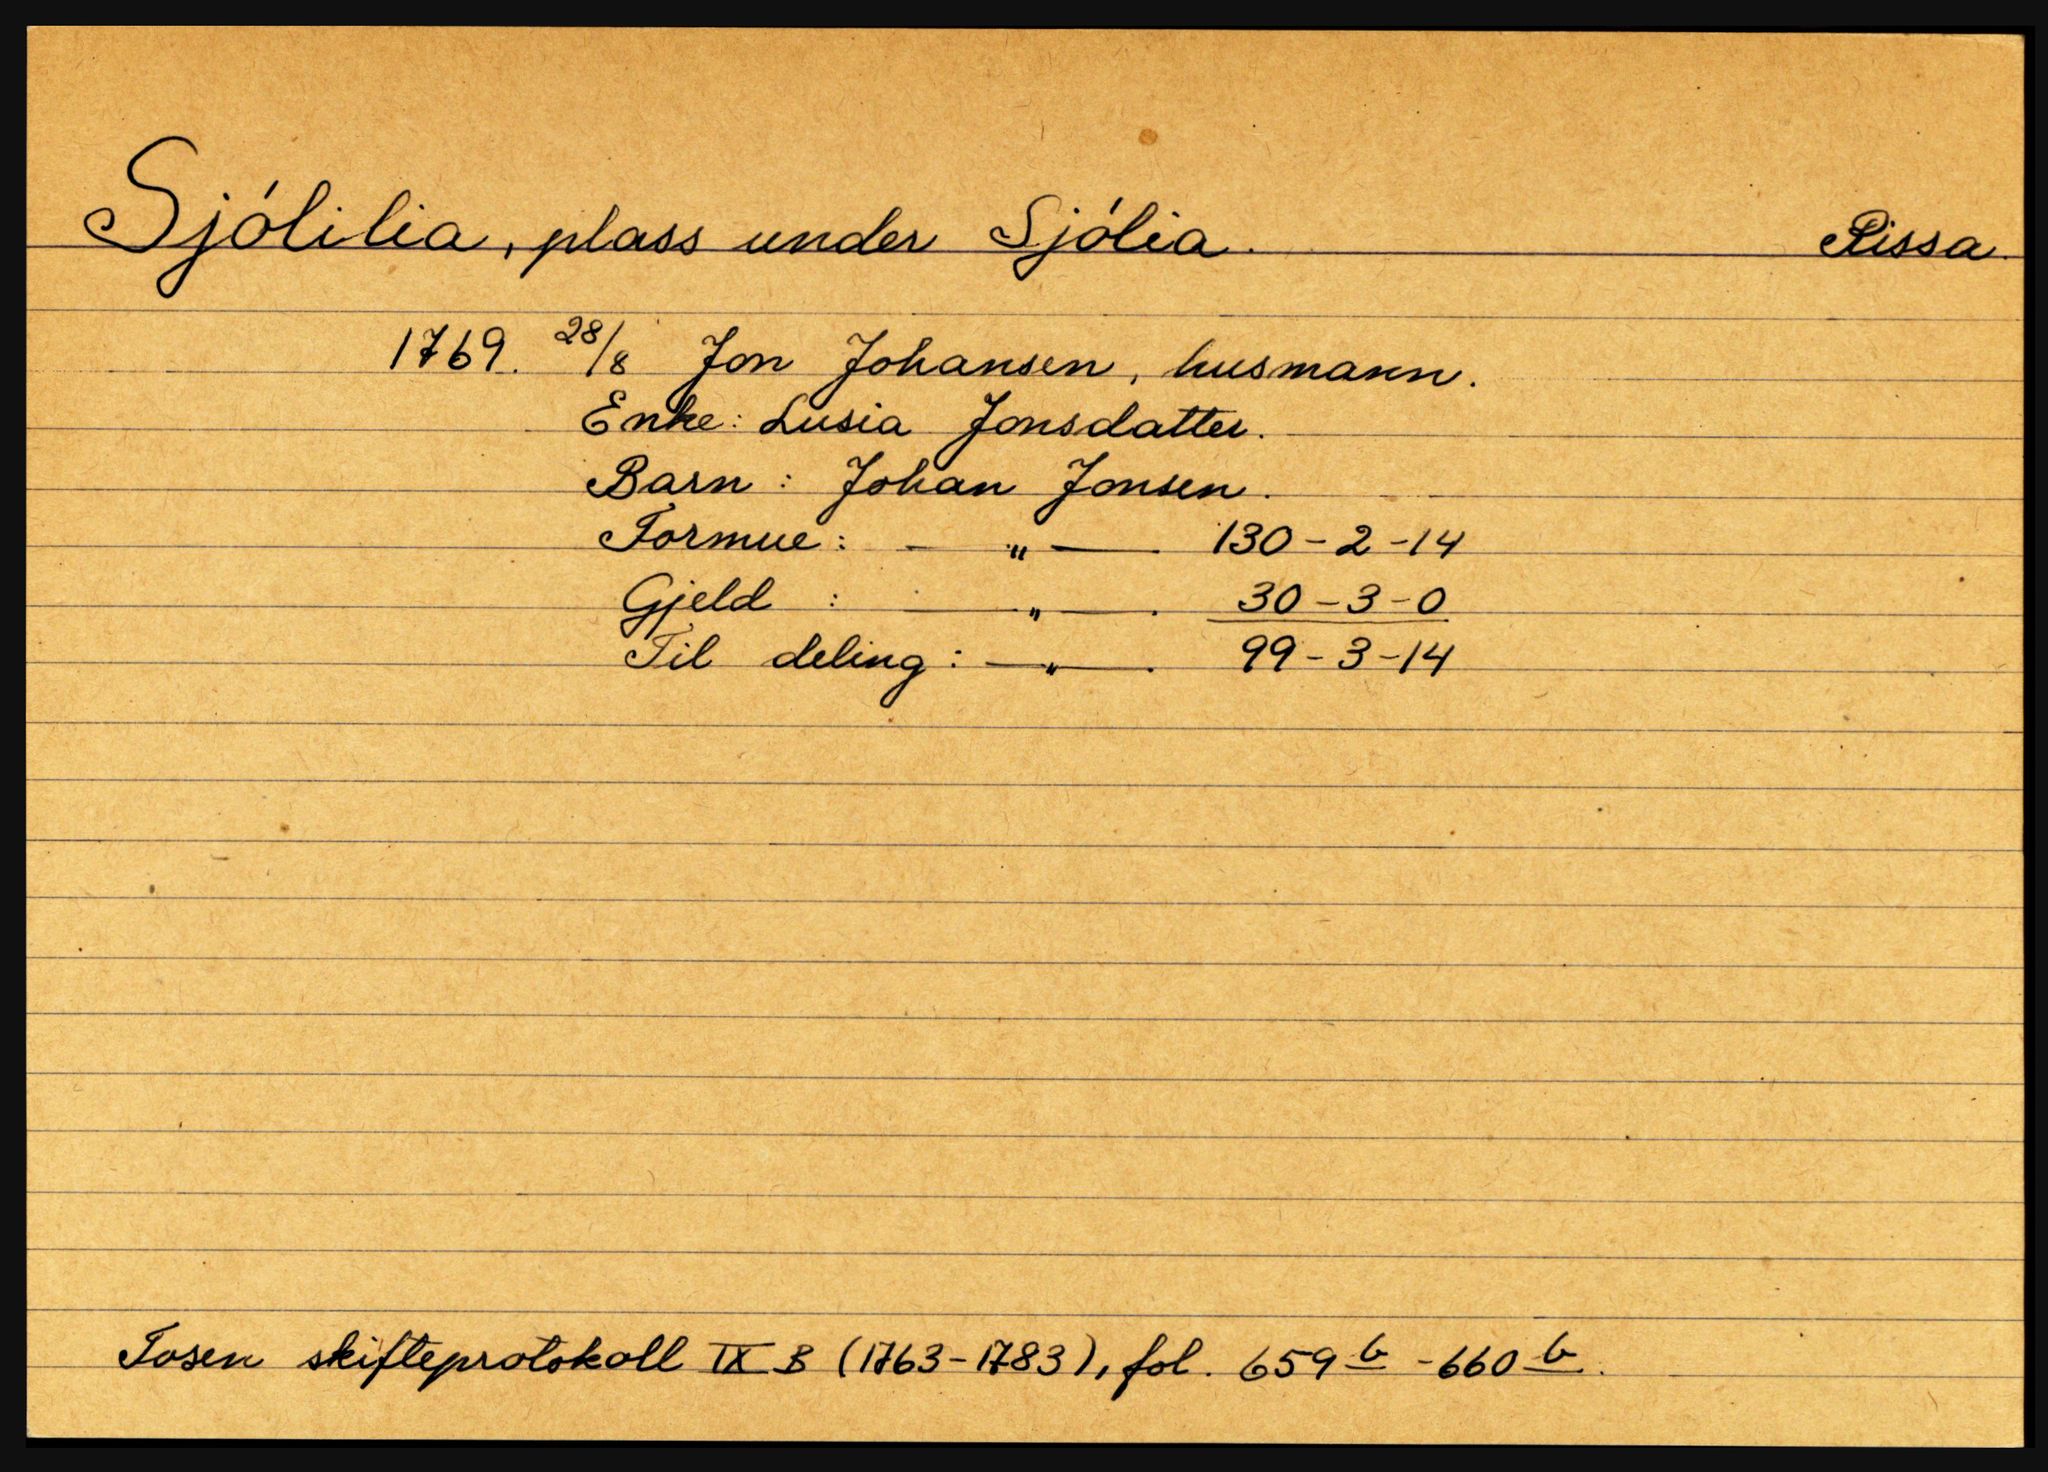 Sjólilia, plass under Sjólia. Rissa.
1769. 28/8 Jon Johansen, husmann.
Enke: Lusia Jonsdatter.
Barn: Johan Jonsen.
Formue: — „ — . 130-2-14
Gjeld : — „ — . 30-3-0
Til deling: — „ — . 99-3-14
Fosen skifteprotokoll IX B (1763-1783), fol. 659 b - 660 b.